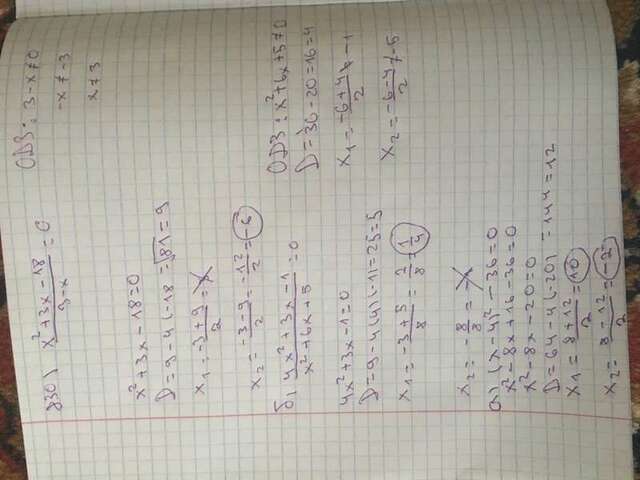 830) (x² + 3x - 18)/(3-x) = 0
ОДЗ: 3-x≠0
-x ≠ -3
x ≠ 3
x² + 3x - 18 = 0
D = 9 - 4(-18 = √81 = 9
x₁ = (-3+9)/2 =
x₂ = (-3-9)/2 = -12/2 = -6
б) (4x² + 3x - 1)/(x² + 6x + 5) = 0
ОДЗ: x² + 6x + 5 ≠ 0
D = 36 - 20 = 16 = 4
x₁ = (-6+4)/2 ≠ -1
x₂ = (-6-4)/2 ≠ -5
4x² + 3x - 1 = 0
D = 9 - 4(4)(-1) = 25 = 5
x₁ = (-3+5)/8 = 2/8 = 1/4
x₂ = -8/8 = -1
а) (x-4)² - 36 = 0
x² - 8x + 16 - 36 = 0
x² - 8x - 20 = 0
D = 64 - 4(-20) = 144 = 12
x₁ = (8+12)/2 = 10
x₂ = (8-12)/2 = -2